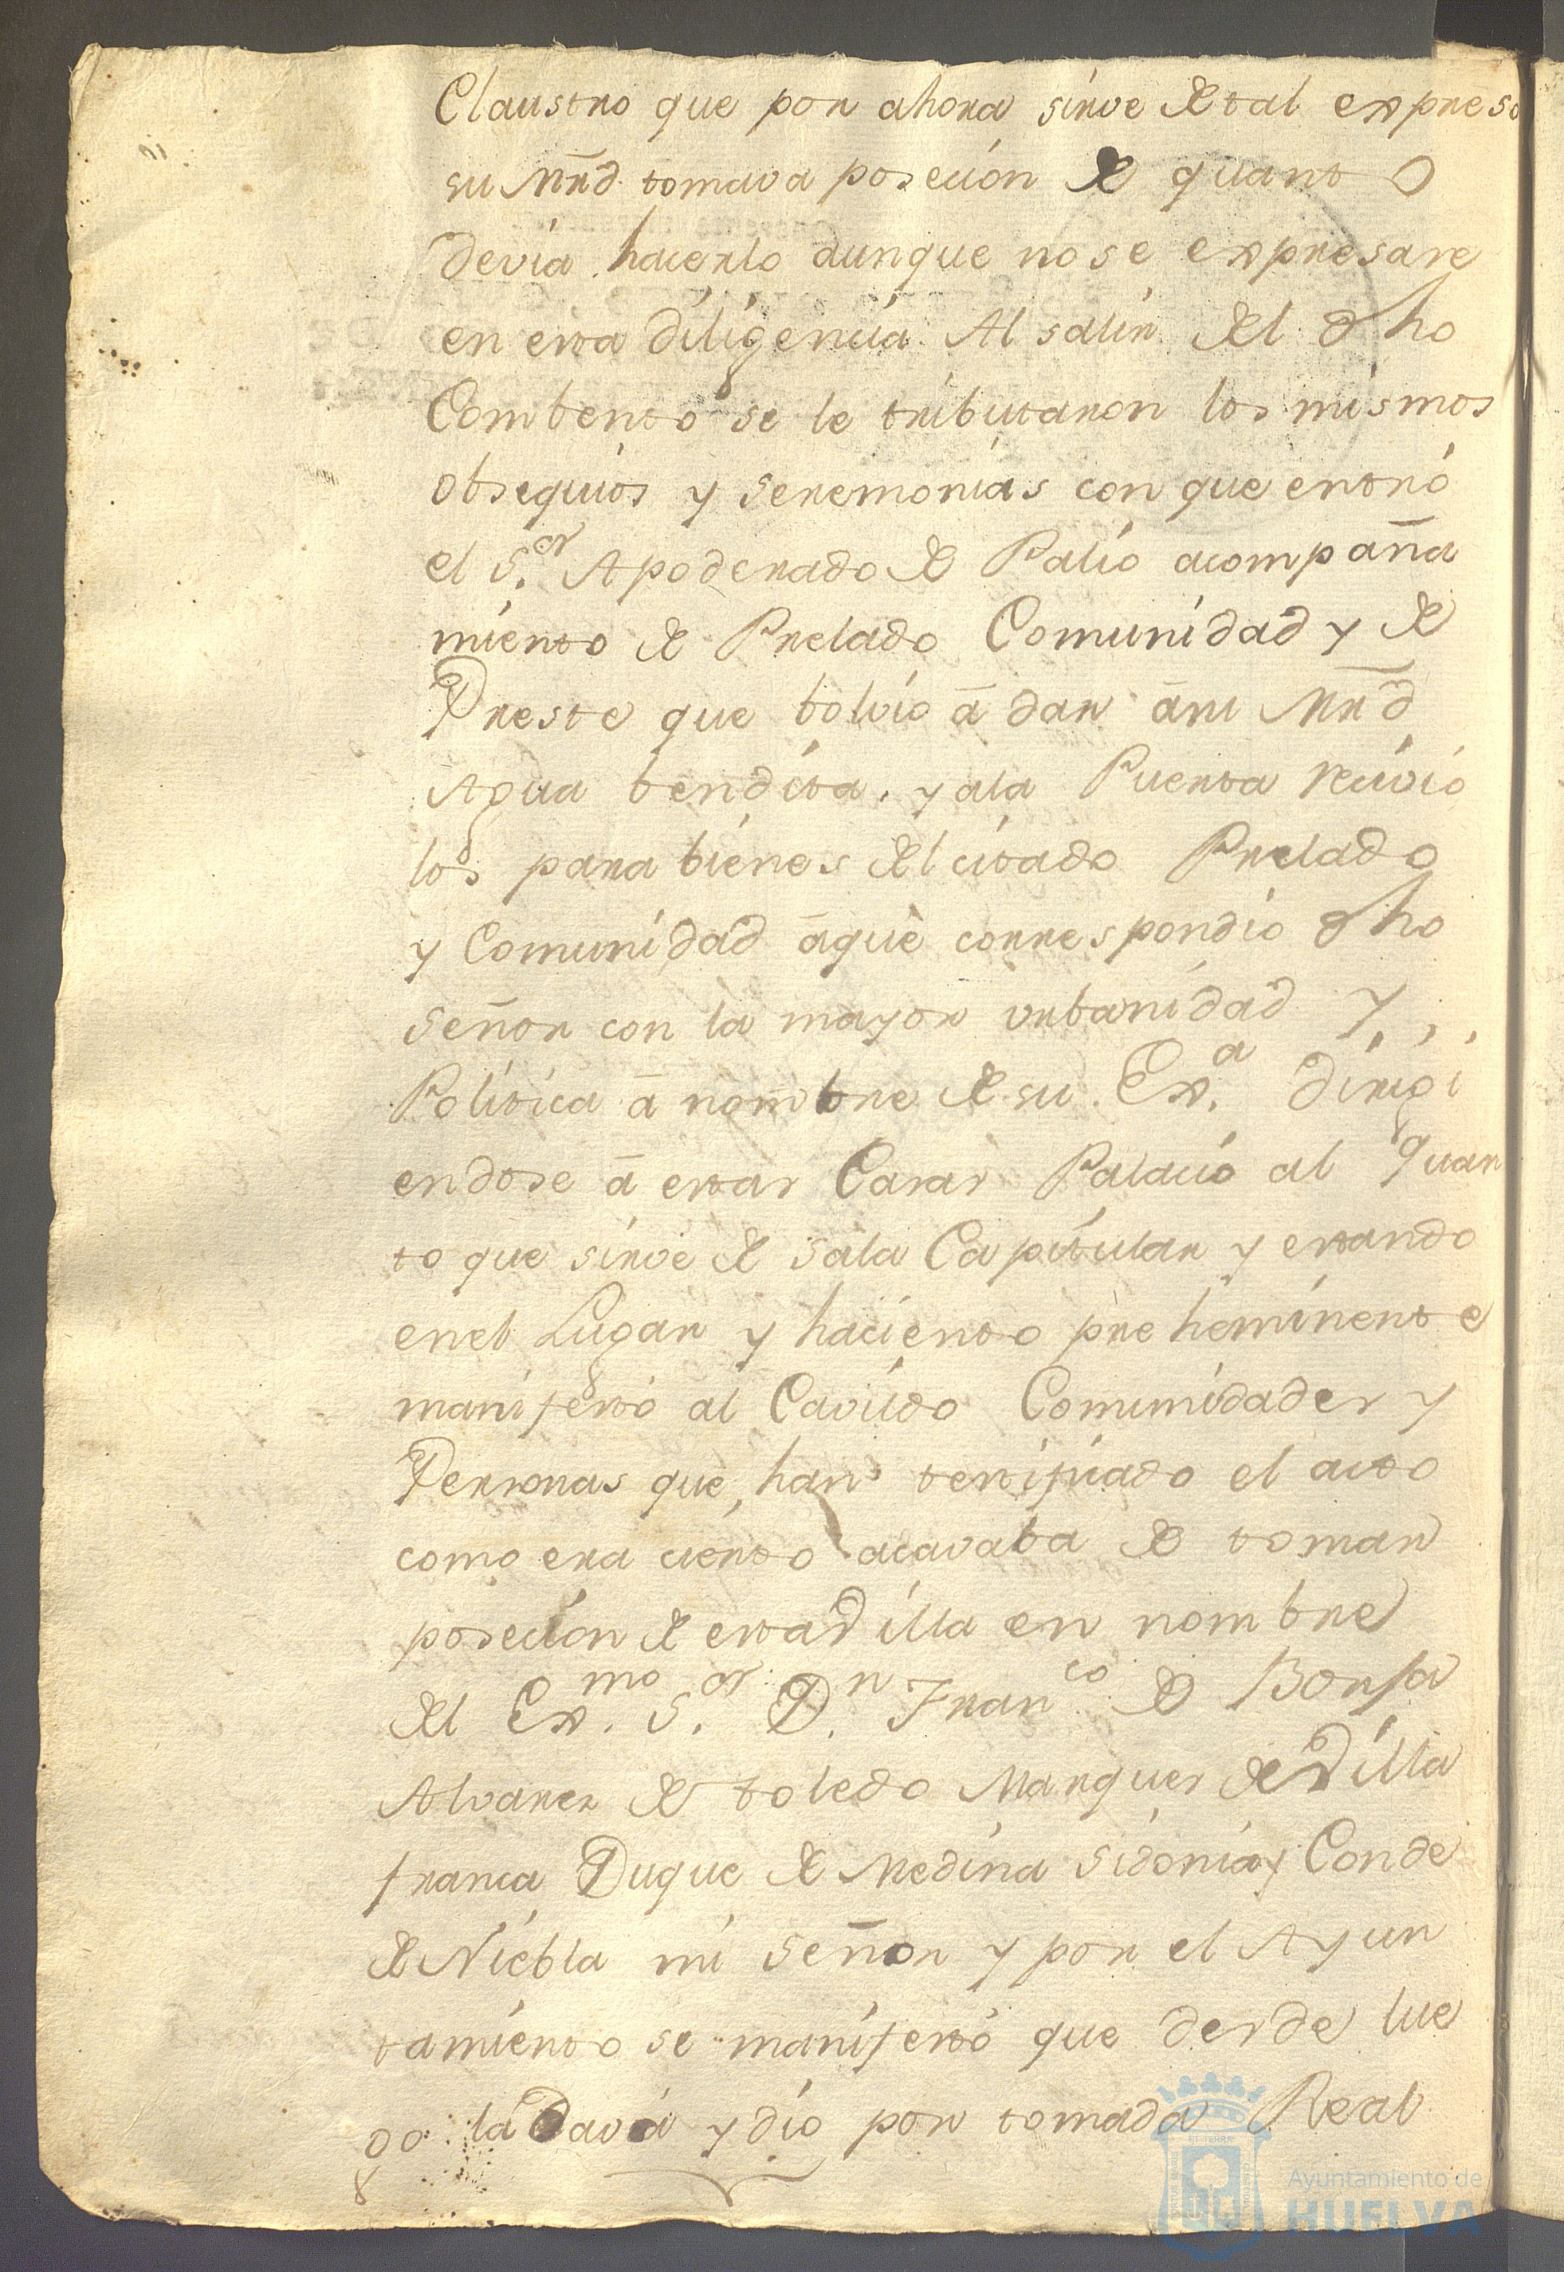 Claustro que por ahora sirve de tal expreso
su Mrd. tomava poseción de quanto
devia hacerlo aunque no se expresare
en esta diligencia Al salir del dho
Combento se le tributaron los mismos
obsequios y seremonias con que entró
el S.or Apoderado de Palio acompaña
miento de Prelado Comunidad y de
Preste que bolvio ā dar āsu Mrd
Agua bendita, y ala Puerta recivio
los parabienes del citado Prelado
y Comunidad āque correspondio dho
señor con la mayor urbanidad y,,,
Politica ā nombre de su Ex.a dirigi
endose ā estas Casas Palacio al quar
to que sirve de sala Capitular y estando
enel Lugar y haciento preheminente
manifestó al Cavildo Comunidades y
Personas que han testificado el acto
como era ciento acavaba de tomar
poseción de esta Villa en nombre
del Ex.mo S.or D.n Fran.co de Borja
Alvarez de toledo Marques de Villa
franca Duque de Medina Sidonia y Conde
de Niebla mi señor y por el Ayun
tamiento se manifestó que desde lue
go la dava y dio por tomada Real
Ayuntamiento de
HUELVA